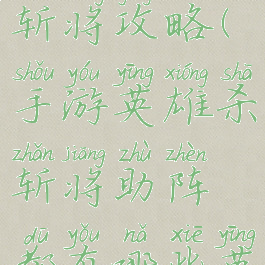 斩将攻略(
shǒu yóu yīng xióng shā
手游英雄杀
zhǎn jiàng zhù zhèn
斩将助阵
dū yǒu nǎ xiē yīng
都有哪些英